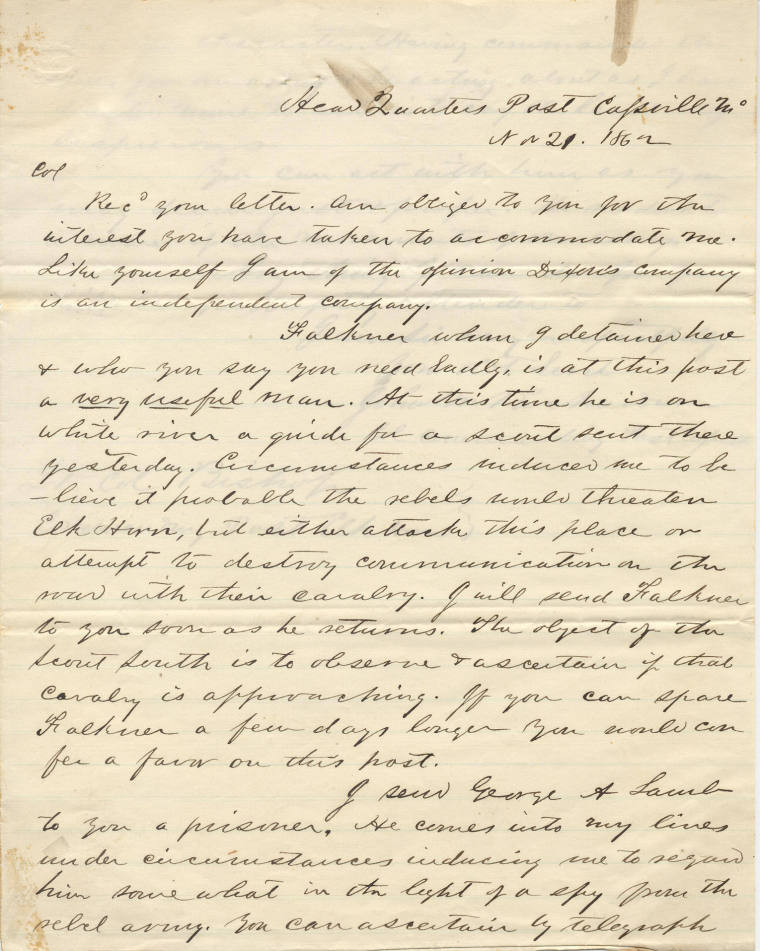 Head Quarters Post Cassville Mo
Nov 21. 1862
Col
Recd your letter. Am obliged to you for the
interest you have taken to accommodate me.
Like yourself I am of the opinion Dixon's company
is an independent company.
Falkner whom I detained here
& who you say you need badly, is at this post
a very useful man. At this time he is on
White river a guide for a scout sent there
yesterday. Circumstances induced me to be
-lieve it probable the rebels would threaten
Elk Horn, but either attack this place or
attempt to destroy communication on the
road with their cavalry. I will send Falkner
to you soon as he returns. The object of the
scout South is to observe & ascertain if that
Cavalry is approaching. If you can spare
Falkner a few days longer you would con
fer a favor on this post.
I send George A Lamb
to you a prisoner. He comes into my lines
under circumstances inducing me to regard
him some what in the light of a spy from the
rebel army. You can ascertain by telegraph